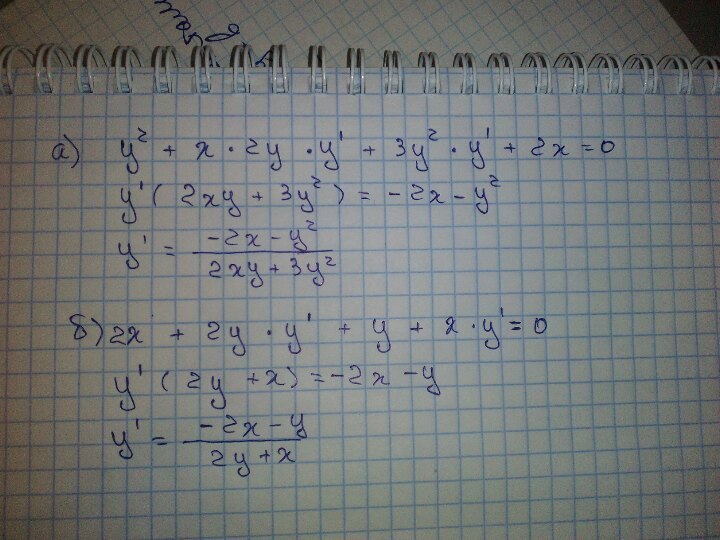 а) y² + x · 2y · y' + 3y² · y' + 2x = 0
y' ( 2xy + 3y² ) = -2x - y²
y' = (-2x - y²)/(2xy + 3y²)
б) 2x + 2y · y' + y + x · y' = 0
y' ( 2y + x) = -2x - y
y' = (-2x - y)/(2y + x)